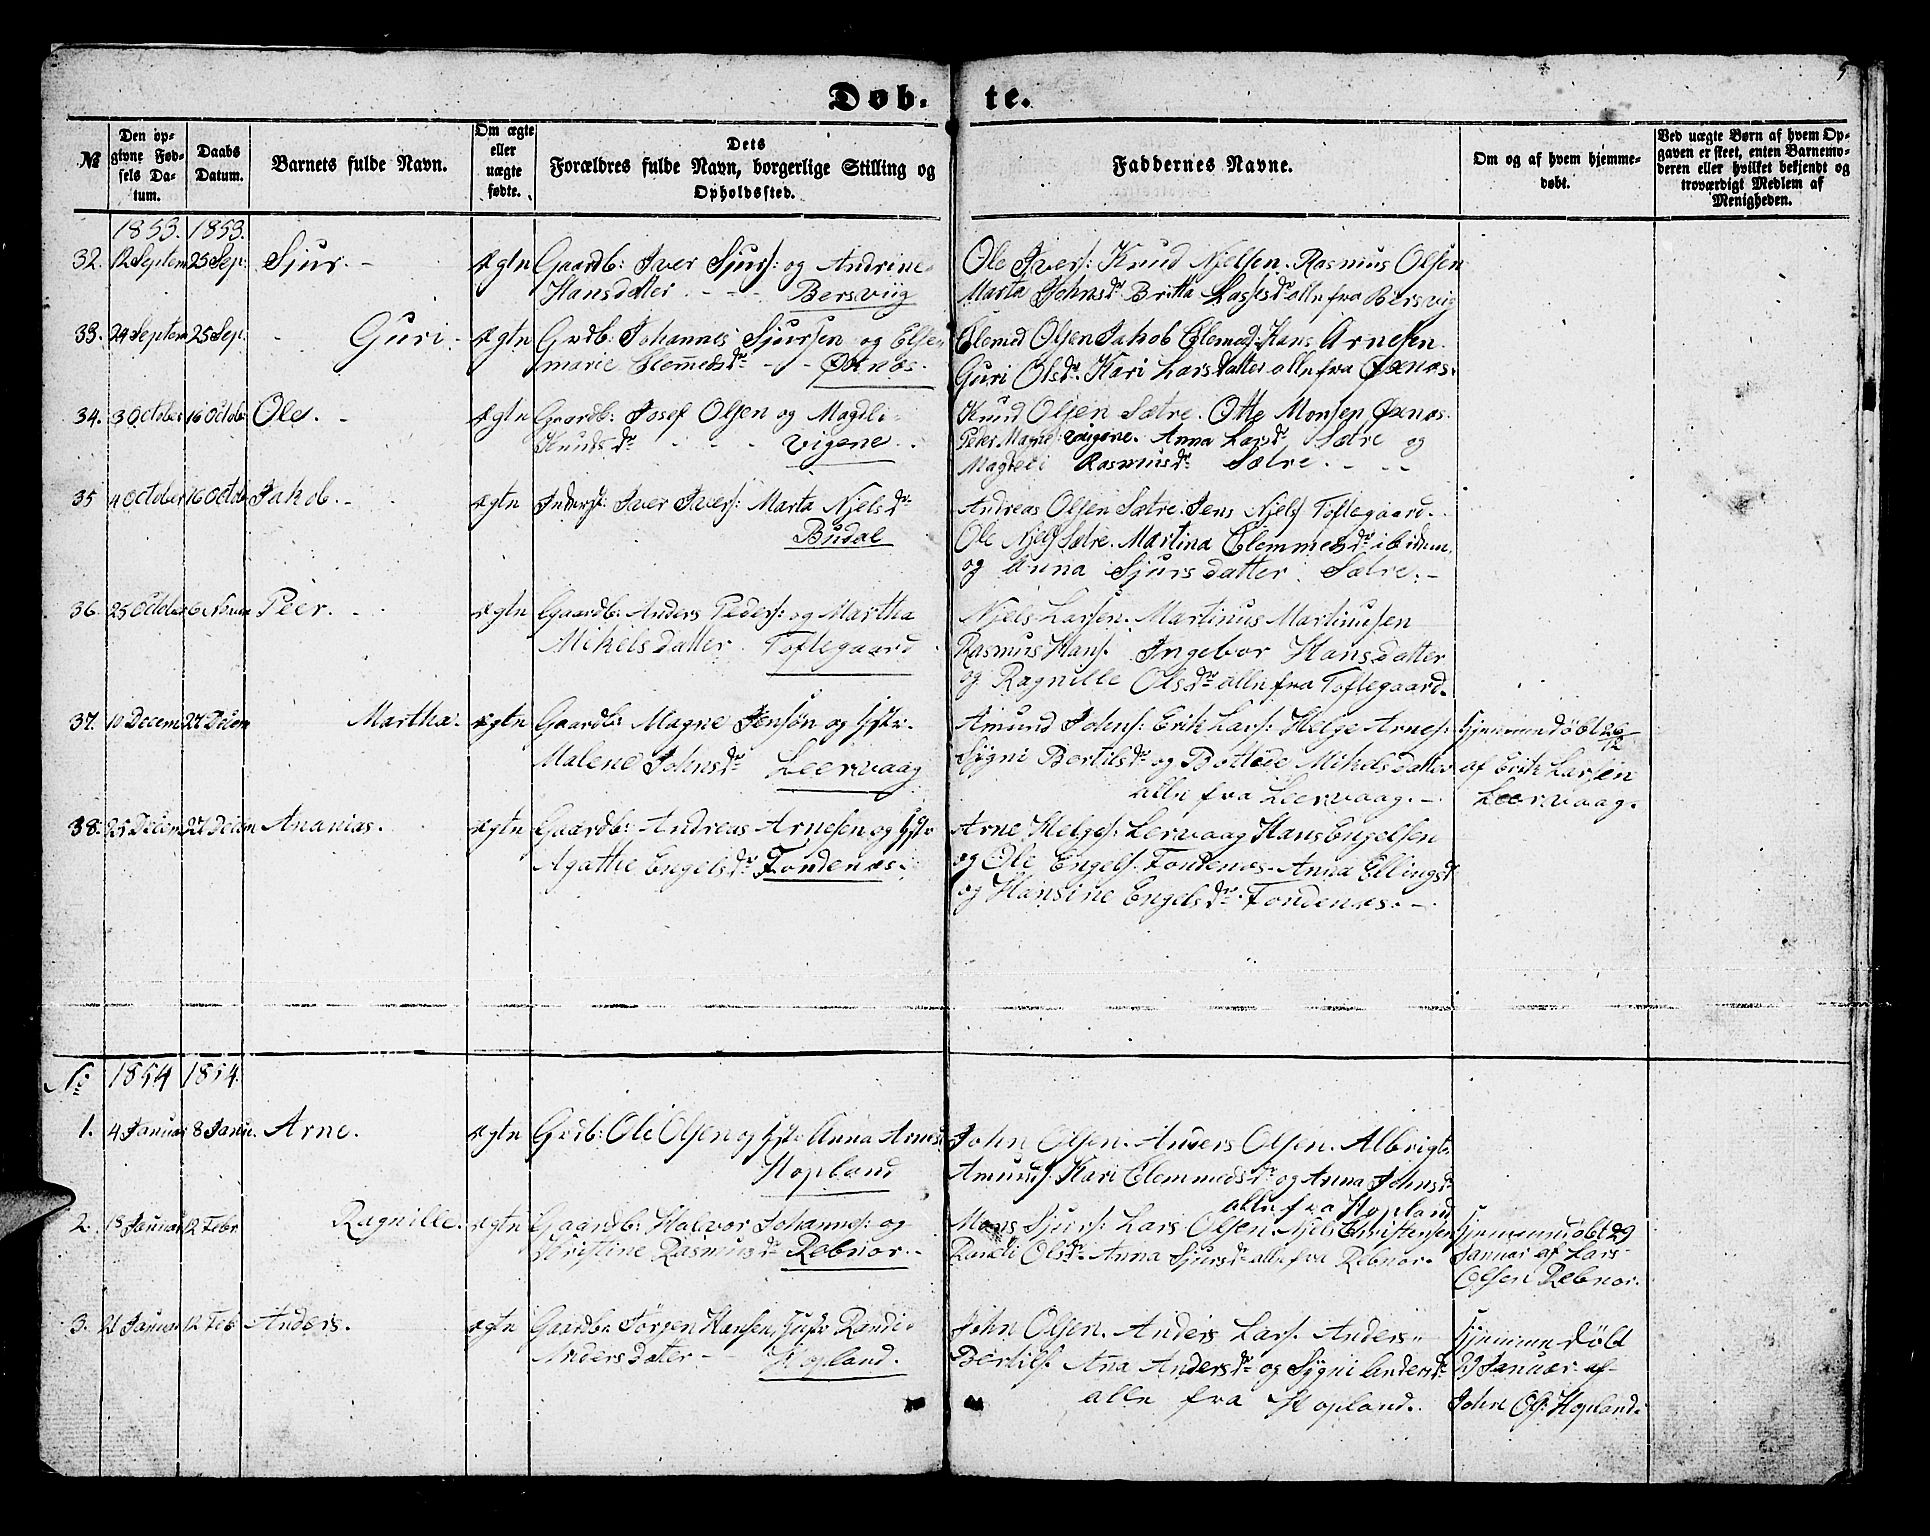 5
Døb- te.
№
Den op-
givne Fød-
sels Da-
tum.
Daabs
Datum.
Barnets fulde Navn.
Om ægte
eller
uægte
fødte.
Dets
Forældres fulde Navn, borgerlige Stilling og
Opholdssted.
Faddernes Navne.
Om og af hvem hjemme-
døbt.
Ved uægte Børn af hvem Op-
gaven er skeet, enten Barnemo-
deren eller hvilket bekjendt og
troværdigt Medlem af
Menigheden.
1853. 1853.
32. 12 Septem 25 Sep: Sjur. - ægtn Gaardb: Iver Sjurs: og Andrine
Hansdatter - - - Bersviig
Ole Ivers: Knud Njelsen. Rasmus Olsen
Marta Johnsdr. Britta Lassesdr alle fra Bersvig
33. 24 Septem 25 Sep. - Guri. - ægtn Grdb: Johannes Sjursen og Elsen
marie Clem̄edsdr - - Øxnæs.
Clemed Olsen Jakob Clemeds: Hans Arnesen.
Guri Olsdr. Kari Larsdatter alle fra Øxnæs.
34. 3 October 16 Octobr Ole. - ægtn Gaardb: Josef Olsen og Magdli
Knudsdr - - - Vigene.
Knud Olsen Sætre. Otte Monsen Øxnæs.
Peder Magne: Vigene. Anna Larsdr Sætre og
Magdeli Rasmusdr Sætre. - - -
35 4 October 16 Octobr Jakob. - ægtn Inderst: Iver Ivers: Marta Njelsdr
Budal
Andreas Olsen Sætre. Jens Njels Toftegaard.
Ole Njels Sætre. Martina Clemmedsdr ibidem.
og Anna Sjursdatter. Sætre. -
36. 25 October 6 Novem Peer. - ægtn Gaardb: Anders Peders: og Martha
Mikelsdatter. Toftegaard
Njels Larsen. Martinus Martinusen
Rasmus Hans. Ingebor Hansdatter
og Ragnille Olsdr alle fra Toftegaard.
37. 10 Decem 27 Decem Martha. ægtn Gaardb: Magne Jensøn og Hstr:
Malene Johnsdr Leervaag
Amund Johns: Erik Lars: Helge Arnes:
Sygni Bertelsdr og Bottele Mikelsdatter
alle fra Leervaag. -
Hjemmedøbt 26/12
af Erik Larsen
Leervaag.
38. 25 Decem 27 Decem Ananias. ægtn Gaardb: Andreas Arnesen og Hstr
Agathe Engelsdr Tondenæs.
Arne Helges: Lervaag Hans Engelsen
og Ole Engels. Tondenæs. Anna Ellingsdr
og Hansine Engelsdr. Tondenæs. -
No 1854 1854.
1. 4 Januar 8 Janu. Arne. ægtn Grdb: Ole Olsen og Hstr Anna Arnesd
Hopland
John Olsen. Anders Olsen. Albrigt
Amunds. Kari Clemmedsdr og Anna Johnsdr
alle fra Hopland
2. 13 Januar 12 Febr Ragnille. ægtn Gaardb: Halvor Johannes: og
Christine Rasmusdr Rebnor. -
Mons Sjurs: Lars Olsen. Njels Christensen
Randi Olsdr. Anna Sjursdr alle fra Rebnor.
Hjemmedøbt 29
Januar af Lars
Olsen Rebnor.
3. 21 Januar 12 Feb Anders. ægtn Gaardb: Jørgen Hansen, Hustr Randi
Andersdater - - Hopland.
John Olsen. Anders Lars. Anders
Bertils. An̄a Andersdr og Sygni Andersdr
alle fra Hopland.
Hjemmedøbt
29 Januar af
John Ols: Hopland